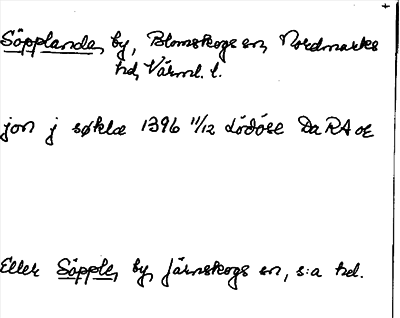 Söpplanda, by, Blomskogs sn, Nordmarks
hd, Värml. l.
jon j søklæ 1396 11/12 Lödöse Da RA or
Eller Söpple, by, Järnskogs sn, s:a hd.